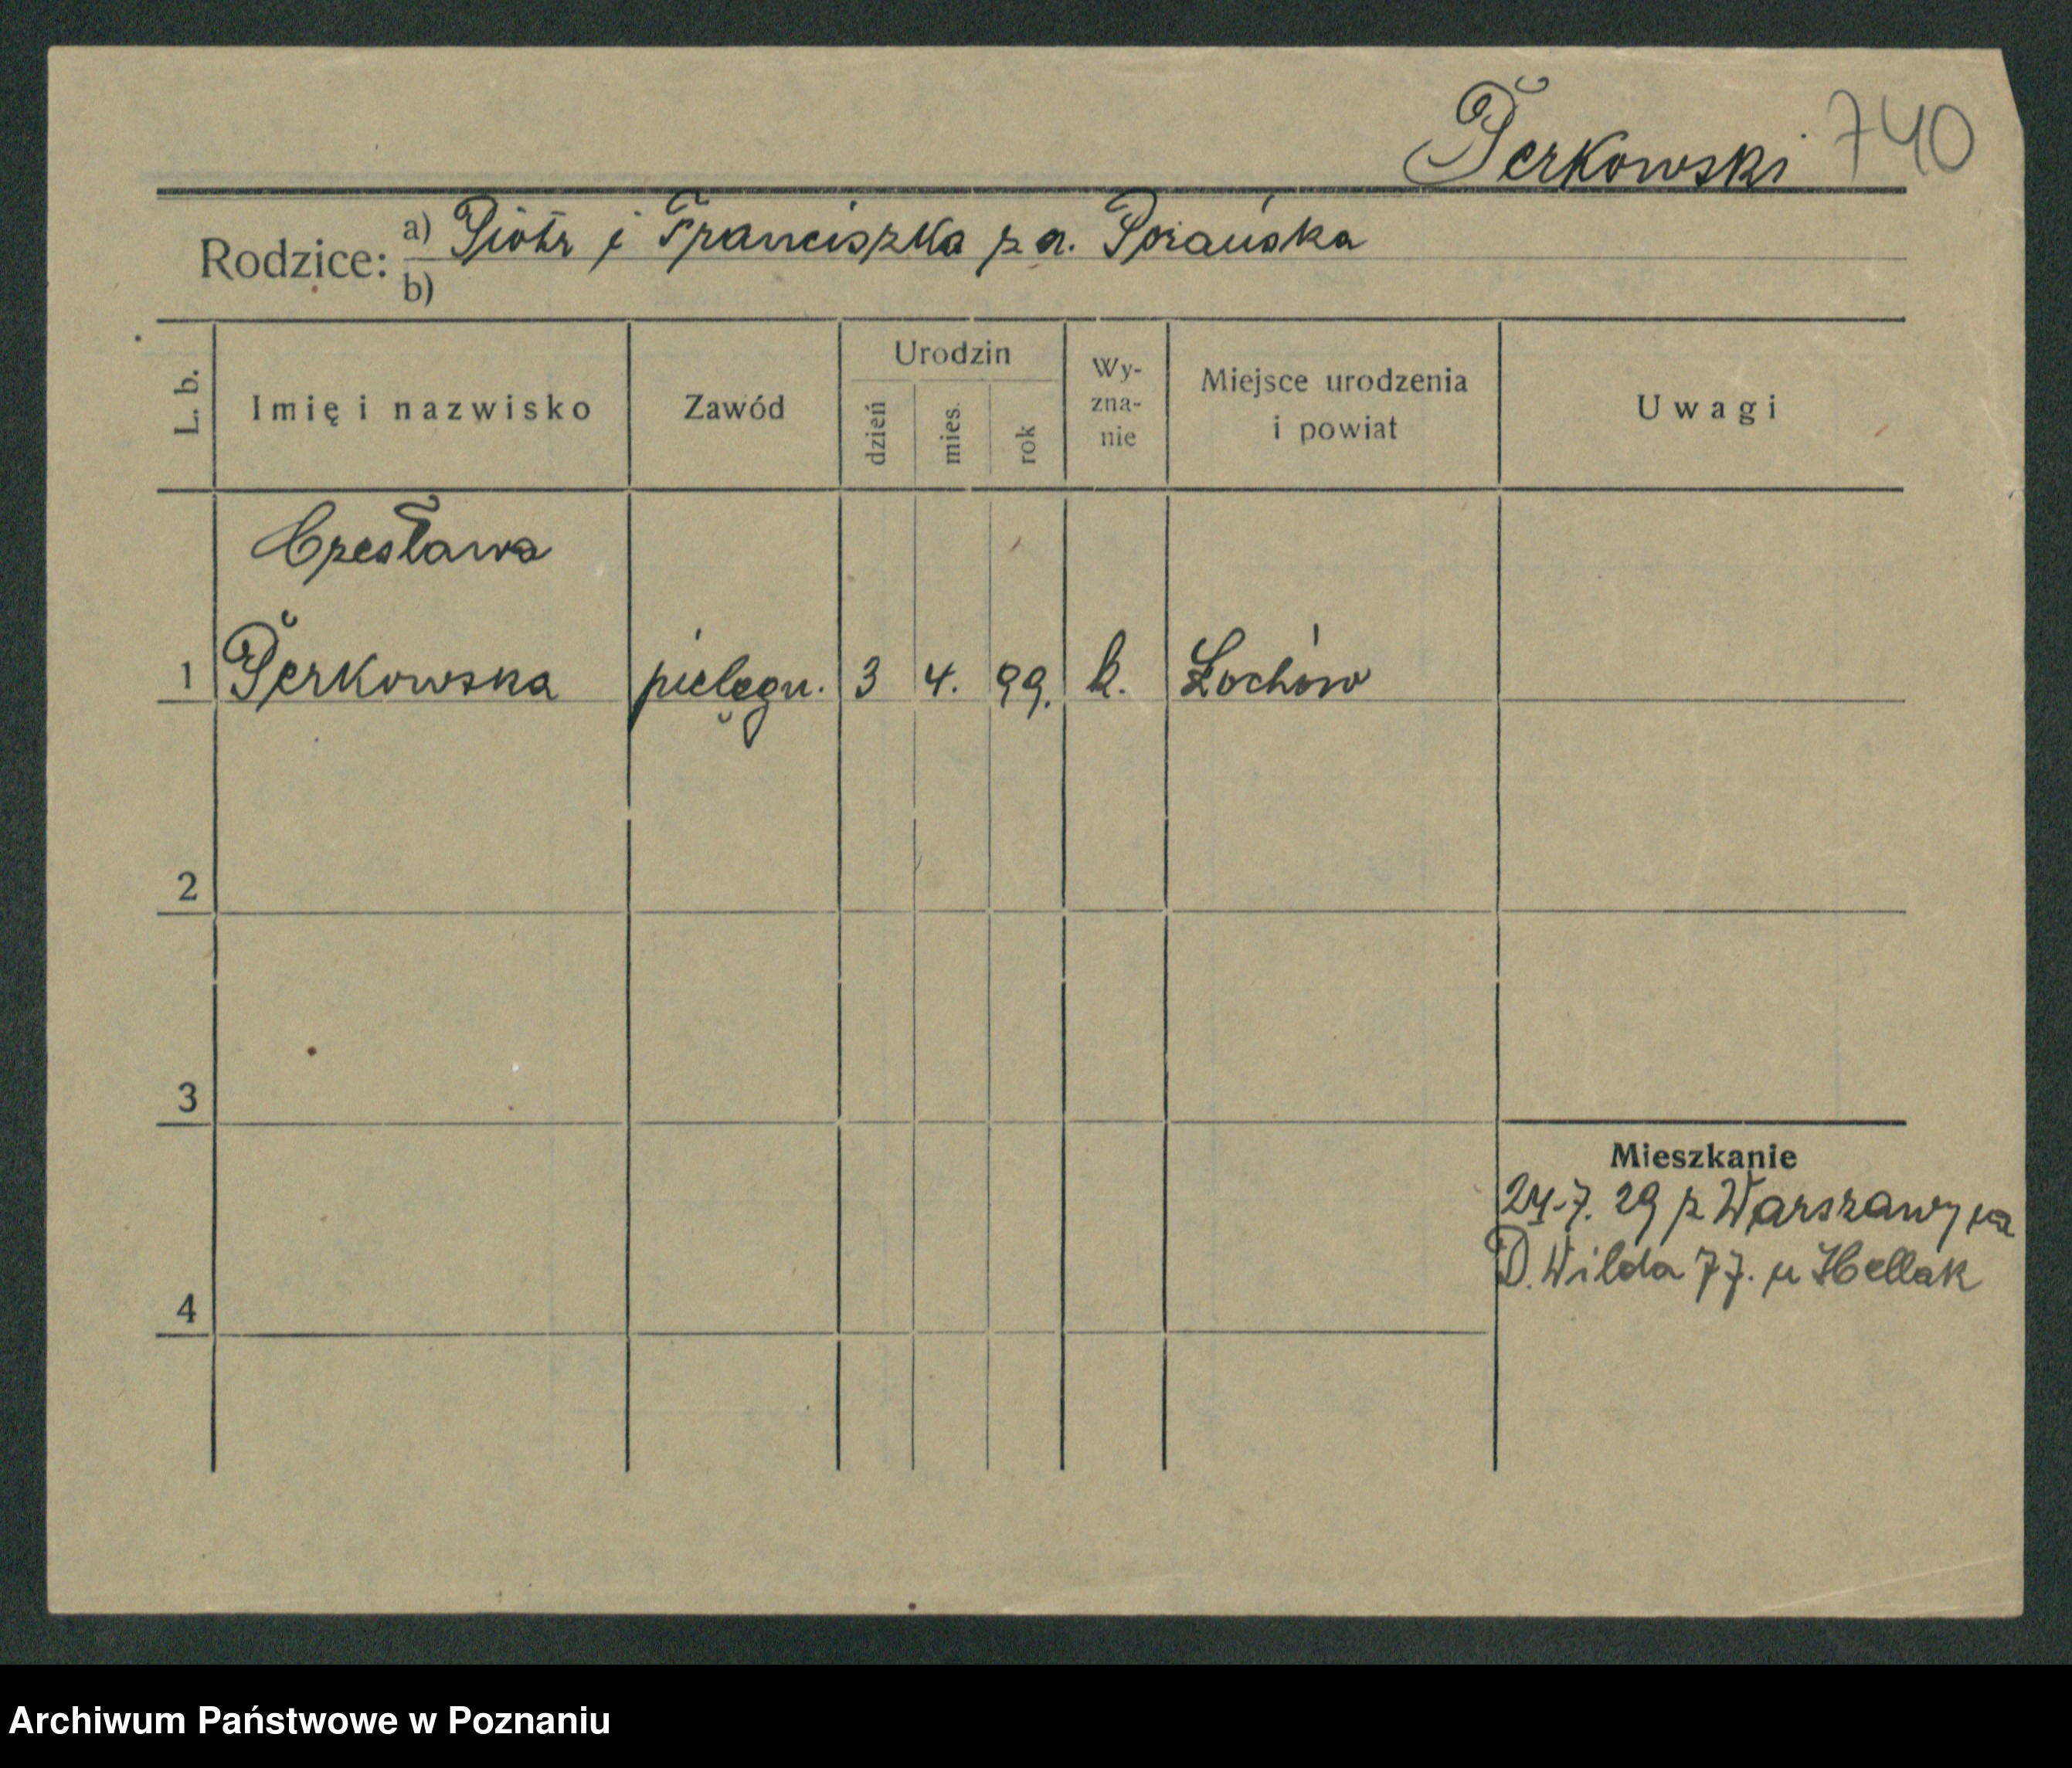 Perkowski 740
Rodzice: a) Piotr i Franciszka z d.
b)
L. b. Imię i nazwisko Zawód Urodzin dzień mies. rok Wy-zna-nie Miejsce urodzenia i powiat Uwagi
Czesława
1 Perkowska pielęgn. 3 4. 99. k. Łochów
2
3
Mieszkanie
24.7.29 z Warszawy na
D. Wilda 77. u Hellak
4
Archiwum Państwowe w Poznaniu